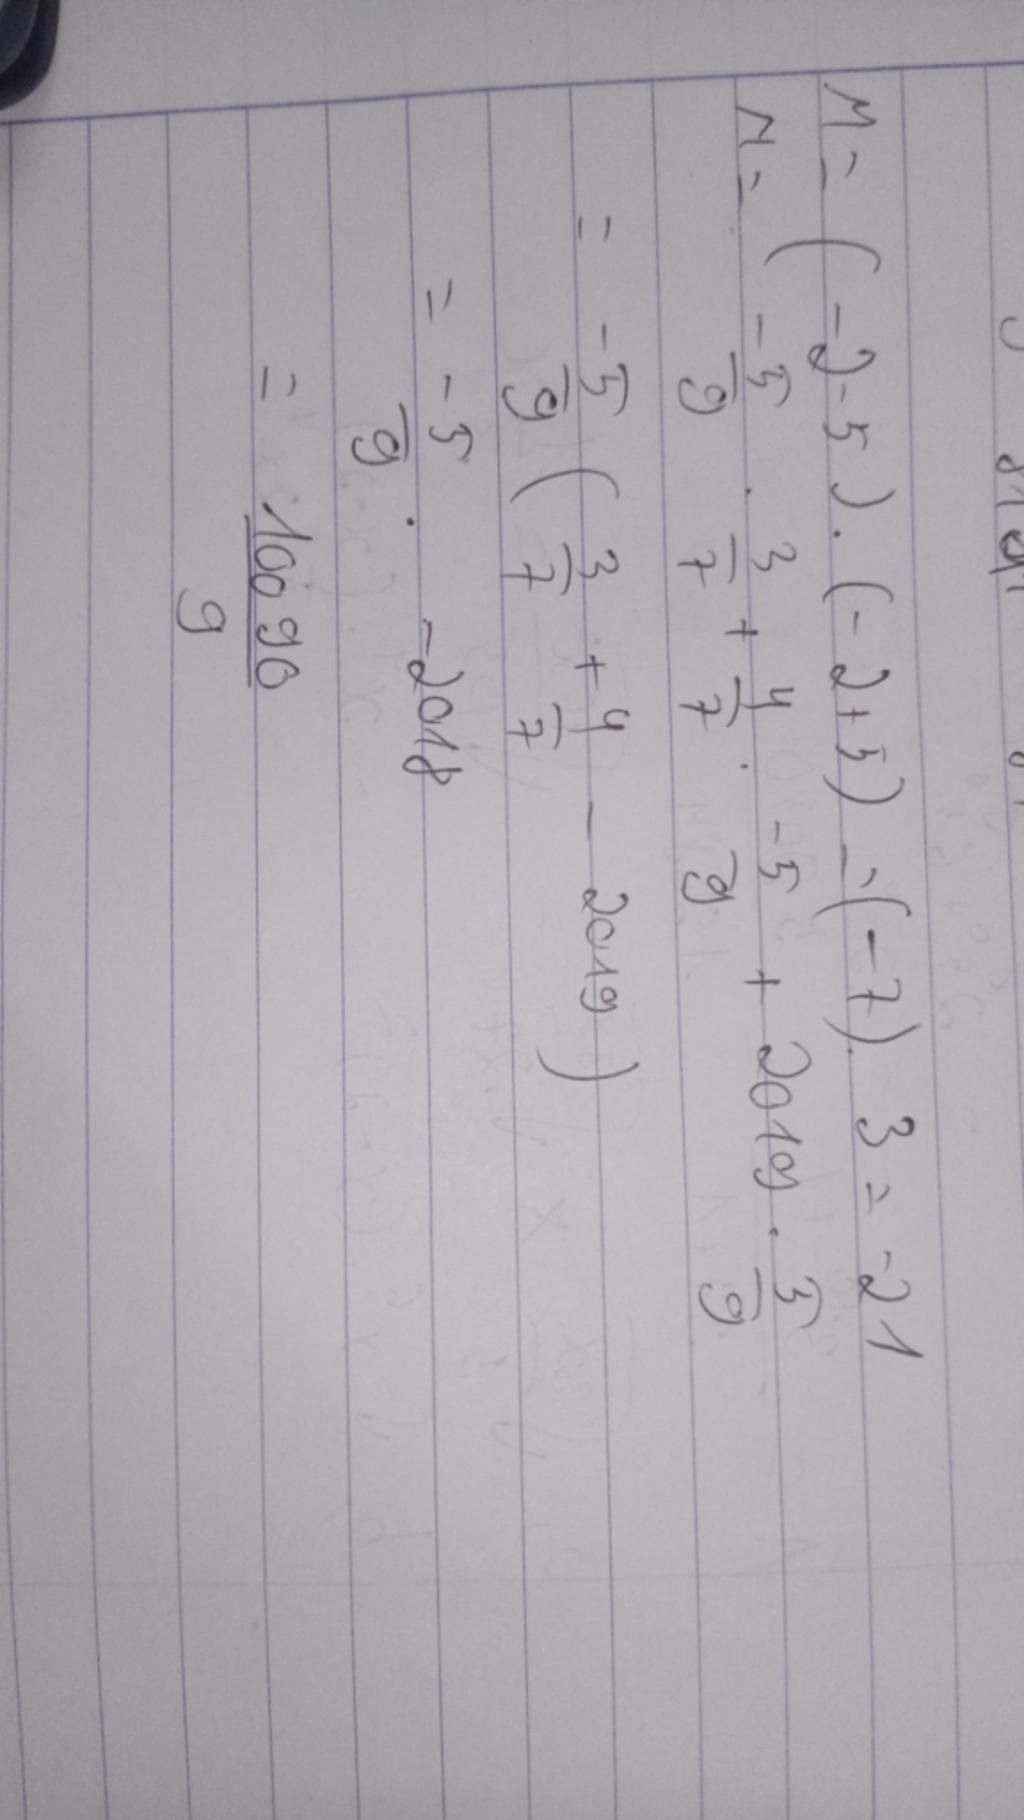 M = (-2-5).(-2+5) = (-7).3 = -21
M = (-5/9 . 3/7 + 4/7 . -5/9 + 2019 . 5/9
= -5/9 (3/7 + 4/7 - 2019)
= -5/9 . -2018
= 10090/9